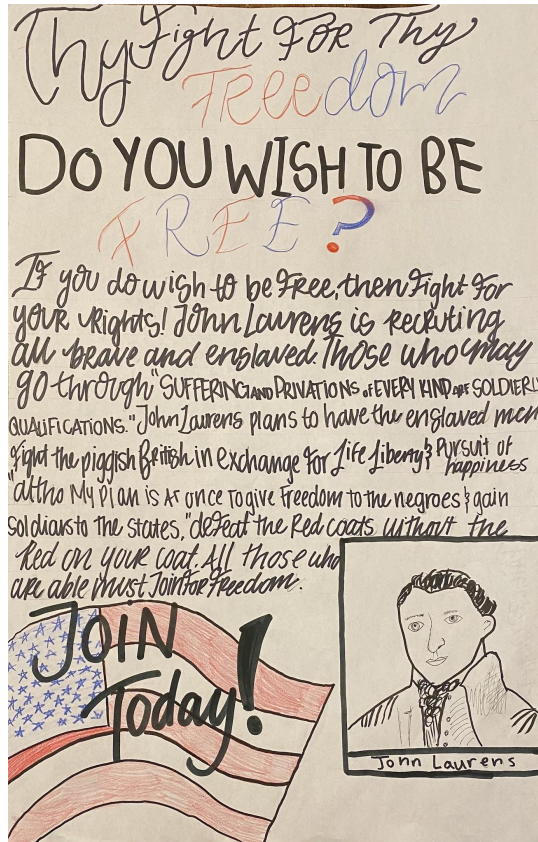 Thy Fight For Thy
Freedom
DO YOU WISH TO BE
FREE?
If you do wish to be Free, then Fight For
your Rights! John Laurens is recruting
all brave and enslaved. Those who may
go through "SUFFERING AND PRIVATIONS of EVERY KIND are SOLDIERLY
QUALIFICATIONS." John Laurens plans to have the enslaved men
fight the piggish British in exchange for Life Liberty & Pursuit of
happiness
"altho My Plan is at once to give Freedom to the negroes & gain
soldiars to the states," defeat the Red coats without the
Red on your coat. All those who
are able must Join for Freedom.
JOIN
Today!
John Laurens